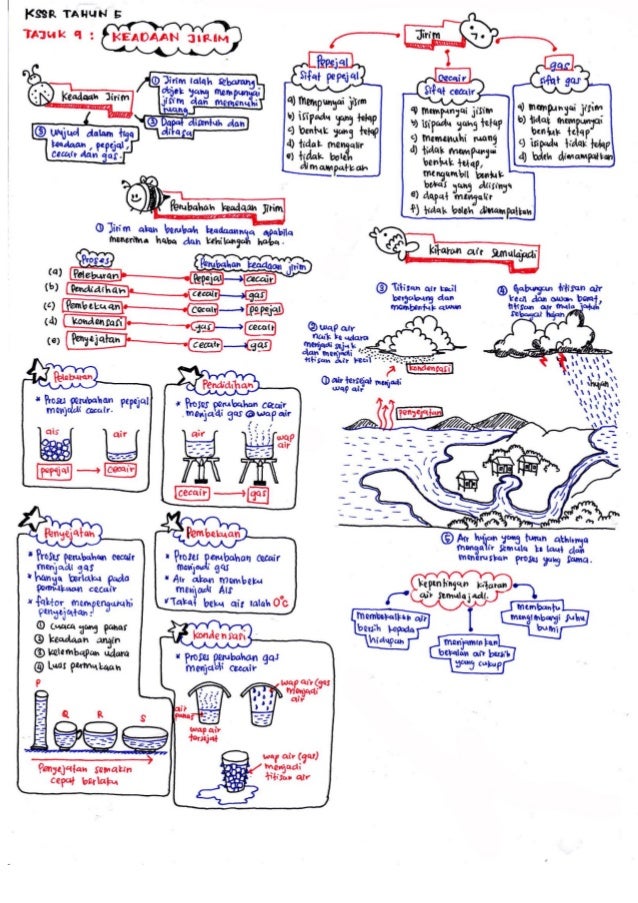 KSSR TAHUN 5
TAJUK 9 :
KEADAAN JIRIM
Keadaan Jirim
① Jirim ialah sebarang
objek yang mempunyai
jisim dan memenuhi
ruang
② Dapat disentuh dan
dirasa
③ Wujud dalam tiga
keadaan, pepejal,
cecair dan gas.
Jirim
Pepejal
Sifat pepejal
a) mempunyai jisim
b) isipadu yang tetap
c) bentuk yang tetap
d) tidak mengalir
e) tidak boleh
dimampatkan
Cecair
Sifat cecair
a) mempunyai jisim
b) isipadu yang tetap
c) memenuhi ruang
d) tidak mempunyai
bentuk tetap,
mengambil bentuk
bekas yang diisinya
e) dapat mengalir
f) tidak boleh dimampatkan
gas
sifat gas
a) mempunyai jisim
b) tidak mempunyai
bentuk tetap
c) isipadu tidak tetap
d) boleh dimampatkan
Perubahan keadaan Jirim
① Jirim akan berubah keadaannya apabila
menerima haba dan kehilangan haba.
Proses
Perubahan keadaan jirim
(a) Peleburan Pepejal cecair
(b) Pendidihan cecair gas
(c) Pembekuan cecair pepejal
(d) Kondensasi gas cecair
(e) Penyejatan cecair gas
Kitaran air Semulajadi
③ Titisan air kecil
bergabung dan
membentuk awan
④ Gabungan titisan air
kecil dan awan berat,
titisan air mula jatuh
sebagai hujan
② wap air
naik ke udara
menjadi sejuk
dan menjadi
titisan air kecil
kondensasi
① air tersejat menjadi
wap air
penyejatan
hujan
⑤ Air hujan yang turun akhirnya
mengalir semula ke laut dan
meneruskan proses yang sama.
Kepentingan kitaran
air semulajadi.
membekalkan air
bersih kepada
hidupan
menjaminkan
bekalan air bersih
yang cukup
membantu
mengimbangi suhu
bumi
Peleburan
* Proses perubahan pepejal
menjadi cecair.
ais
air
pepejal
cecair
Pendidihan
* Proses perubahan cecair
menjadi gas @ wap air
air
wap
air
cecair
gas
Penyejatan
* Proses perubahan cecair
menjadi gas
* hanya berlaku pada
permukaan cecair
* faktor mempengaruhi
penyejatan:
① Cuaca yang panas
② keadaan angin
③ kelembapan udara
④ Luas permukaan
P
Q
R
S
Penyejatan semakin
cepat berlaku
Pembekuan
* Proses perubahan cecair
menjadi gas
* Air akan membeku
menjadi Ais
* Takat beku air ialah 0°c
Kondensasi
* Proses perubahan gas
menjadi cecair
air
panas
wap air
tersejat
wap air (gas)
menjadi
air
wap air (gas)
menjadi
titisan air